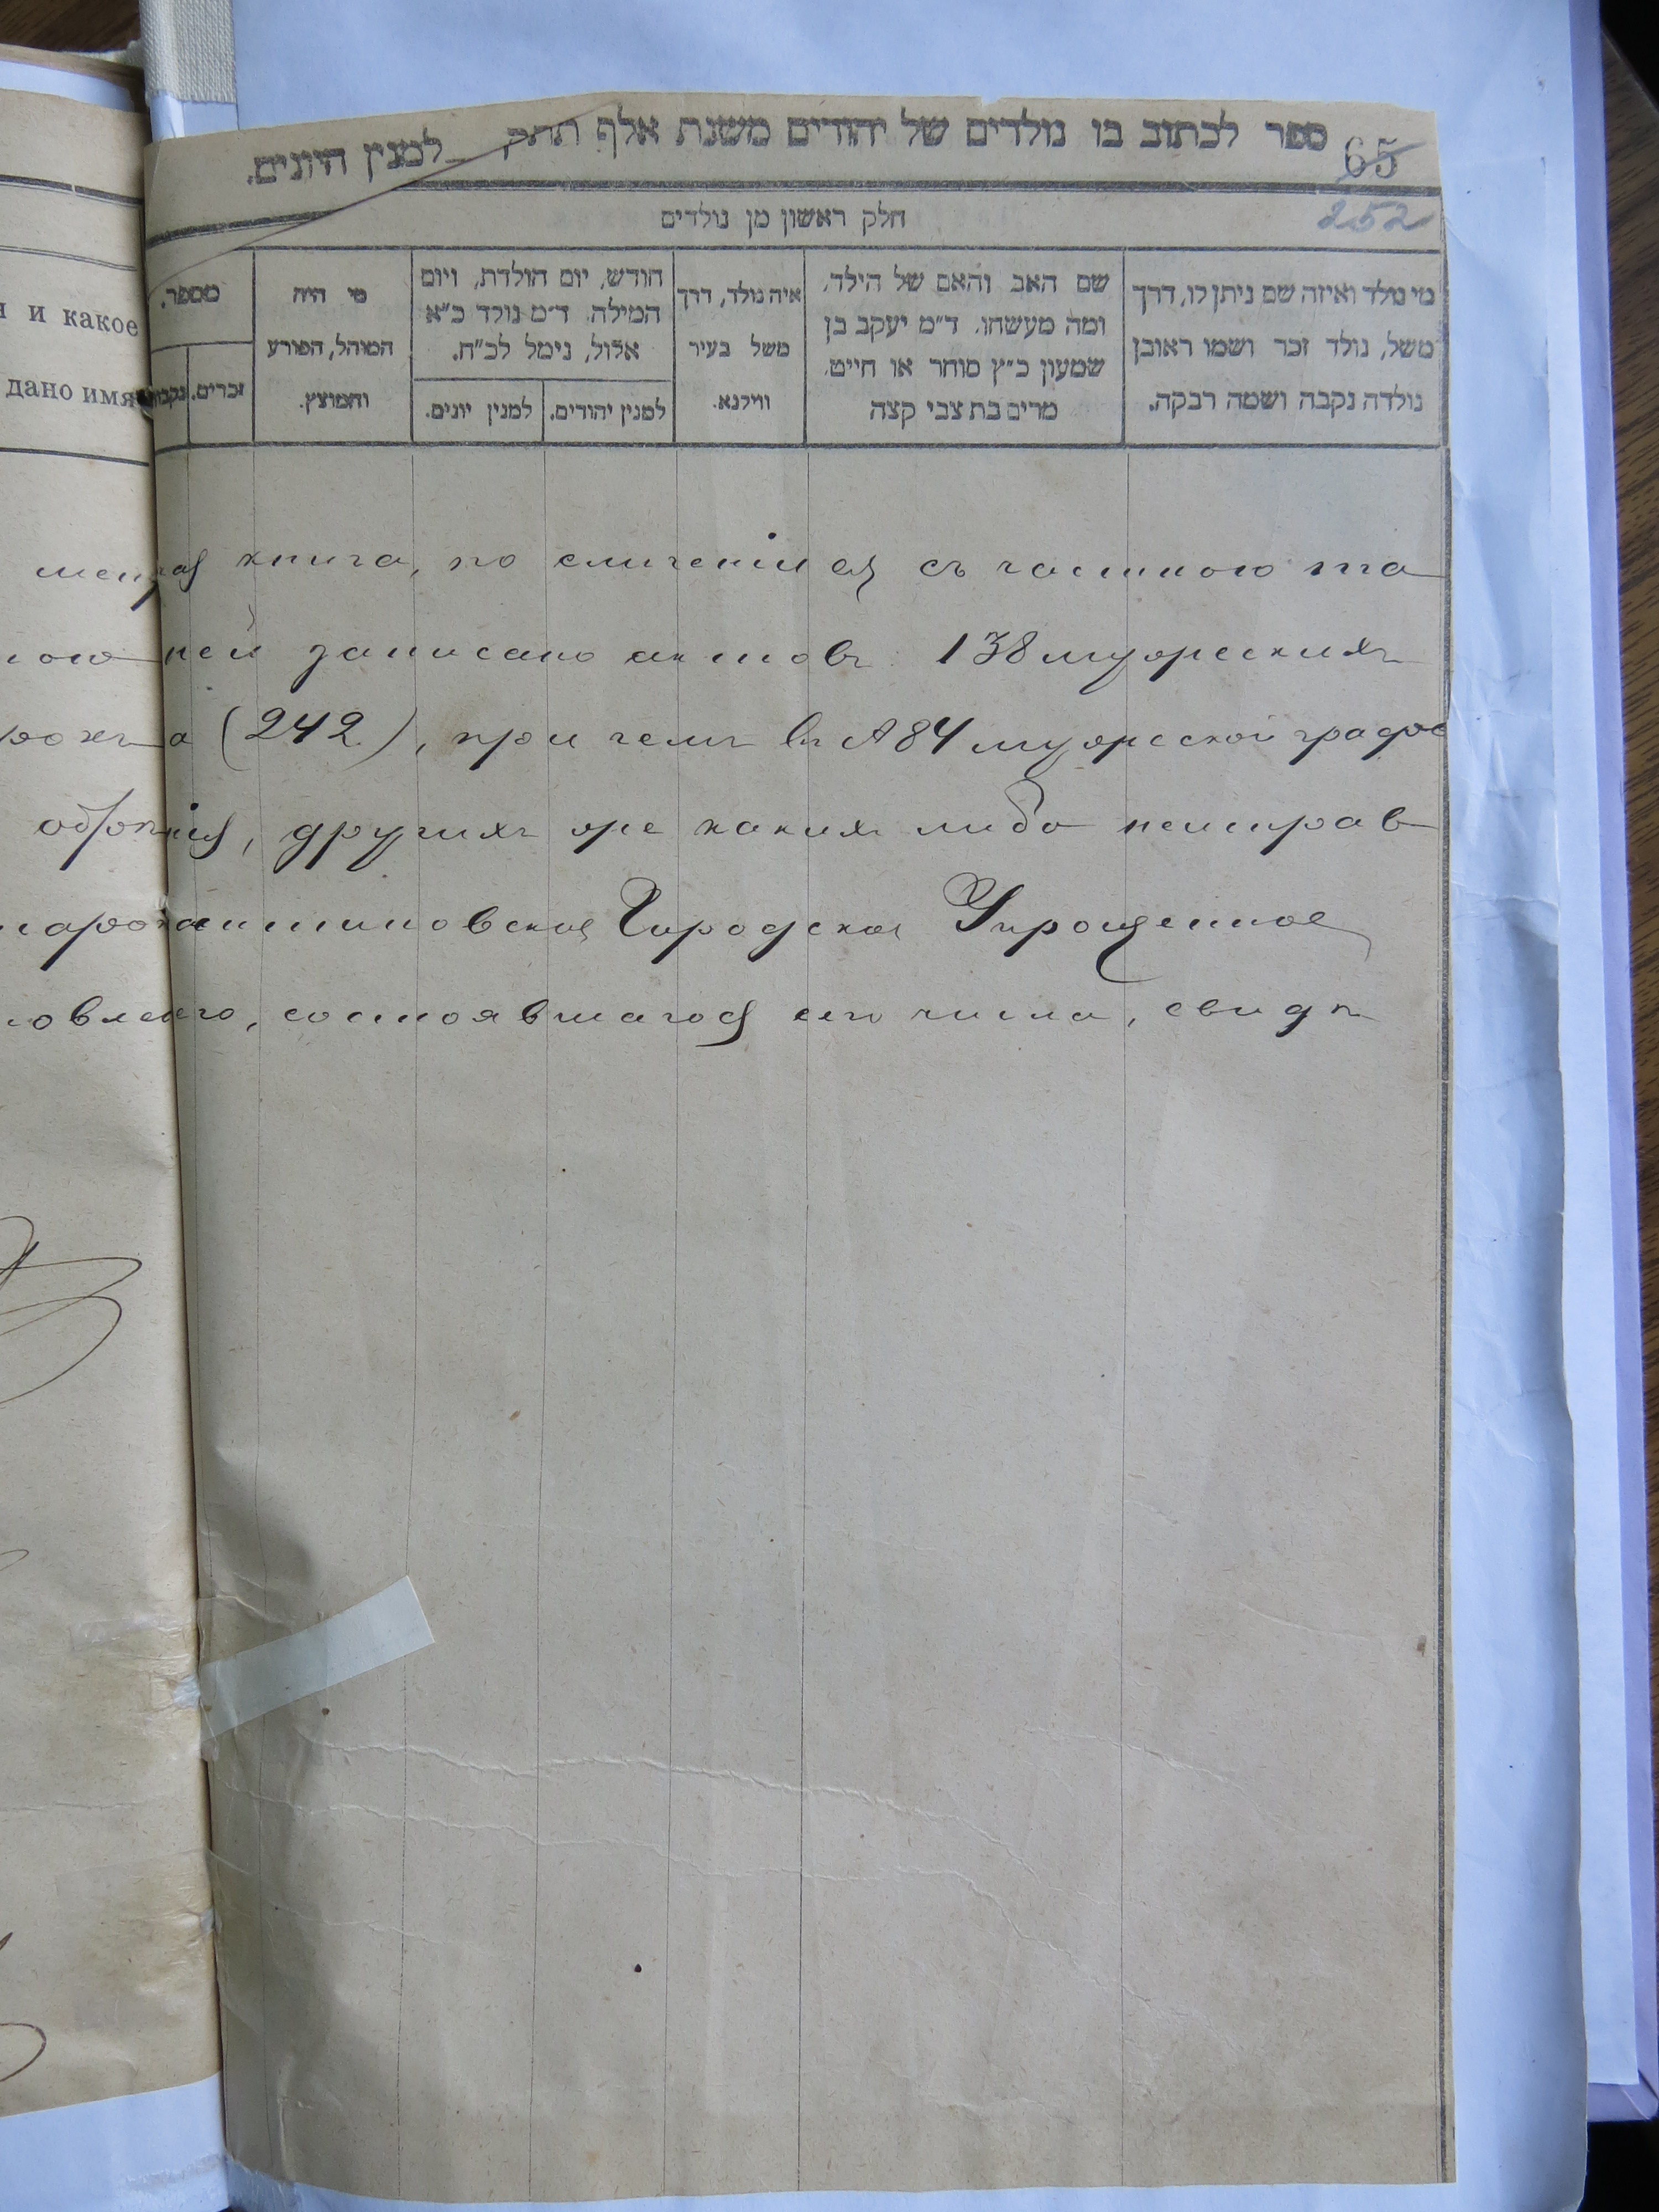 ספר לכתוב בו נולדים של יהודים משנת אלף תתק למנין היונים.
65
252
חלק ראשון מן נולדים
מי נולד ואיזה שם ניתן לו, דרך
משל, נולד זכר ושמו ראובן
נולדה נקבה ושמה רבקה.
שם האב והאם של הילד,
ומה מעשהו. ד״מ יעקב בן
שמעון כ״ץ סוחר או חייט,
מרים בת צבי קצה
איה נולד, דרך
משל בעיר
ווילנא.
חודש, יום הולדת, ויום
המילה. ד״מ נולד כ״א
אלול, נימל לכ״ח.
למנין יהודים.
למנין יונים.
מי היה
המוהל, הפורע
והמוצץ.
מספר.
זכרים.
и какое
дано имя
книга, по сличеніи ея съ частною
ней записано актовъ 138 мужескихъ
(242), при чемъ въ № 84 мужеской
другихъ же какихъ либо неисправ
Городская Упрощенное
состоявшагося сего числа, свидѣ